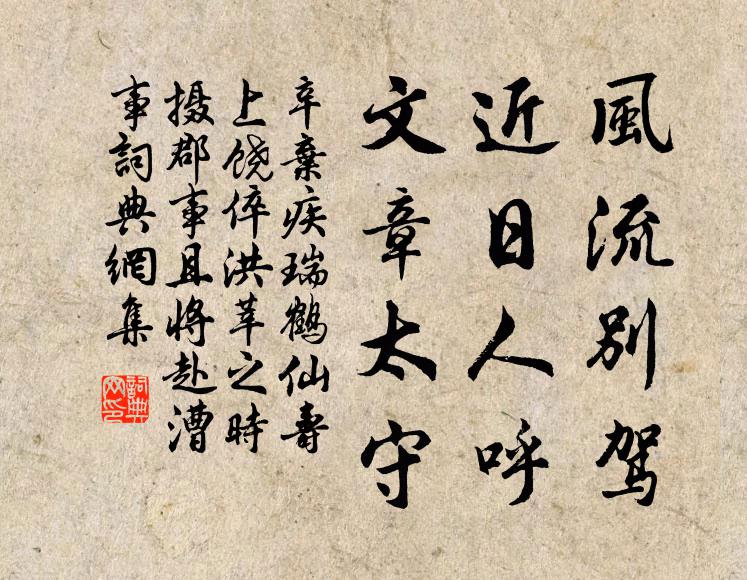 風流別駕
近日人呼
文章太守
辛棄疾瑞鶴仙壽
上饒倅洪莘之時
摄郡事且將赴漕
事詞典網集
詞典
网印